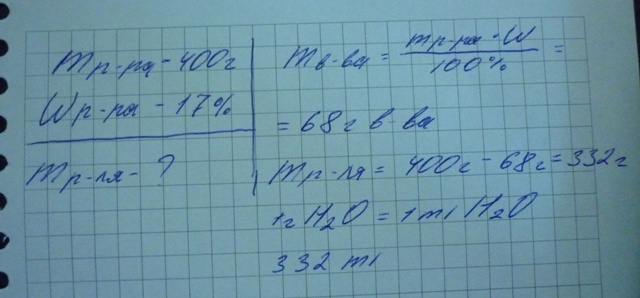 mр-ра - 400г
Wр-ра - 17%
mр-ля - ?
mв-ва = mр-ра · W / 100% =
= 68г в-ва
mр-ля = 400г - 68г = 332г
1г H₂O = 1ml H₂O
332 ml